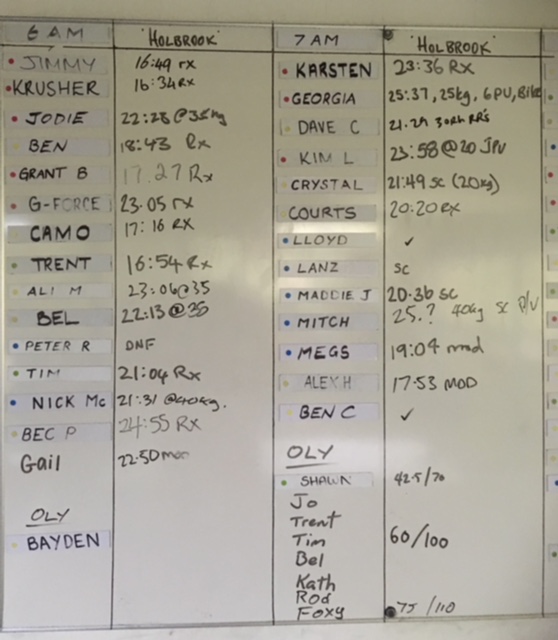 6 AM 'HOLBROOK'
JIMMY 16:49 rx
KRUSHER 16:34 Rx
JODIE 22:28 @ 35kg
BEN 18:43 Rx
GRANT B 17.27 Rx
G-FORCE 23.05 rx
CAMO 17:16 RX
TRENT 16:54 Rx
ALI M 23:06@35
BEL 22:13 @35
PETER R DNF
TIM 21:04 Rx
NICK Mc 21:31 @40kg.
BEC P 24:55 RX
Gail 22.50
OLY
BAYDEN
7 AM 'HOLBROOK'
KARSTEN 23:36 Rx
GEORGIA 25:37, 25kg, 6PU, Bike
DAVE C 21.29
KIM L 23:58@20 JPU
CRYSTAL 21:49 sc (20kg)
COURTS 20:20 RX
LLOYD ✓
LANZ SC
MADDIE J 20.36 sc
MITCH 25.? 40kg sc P/U
MEGS 19:04 mod
ALEX H 17:53 MOD
BEN C ✓
OLY
SHAWN 42.5/70
Jo
Trent
Tim 60/100
Bel
Kath
Rod
Foxy 75/110